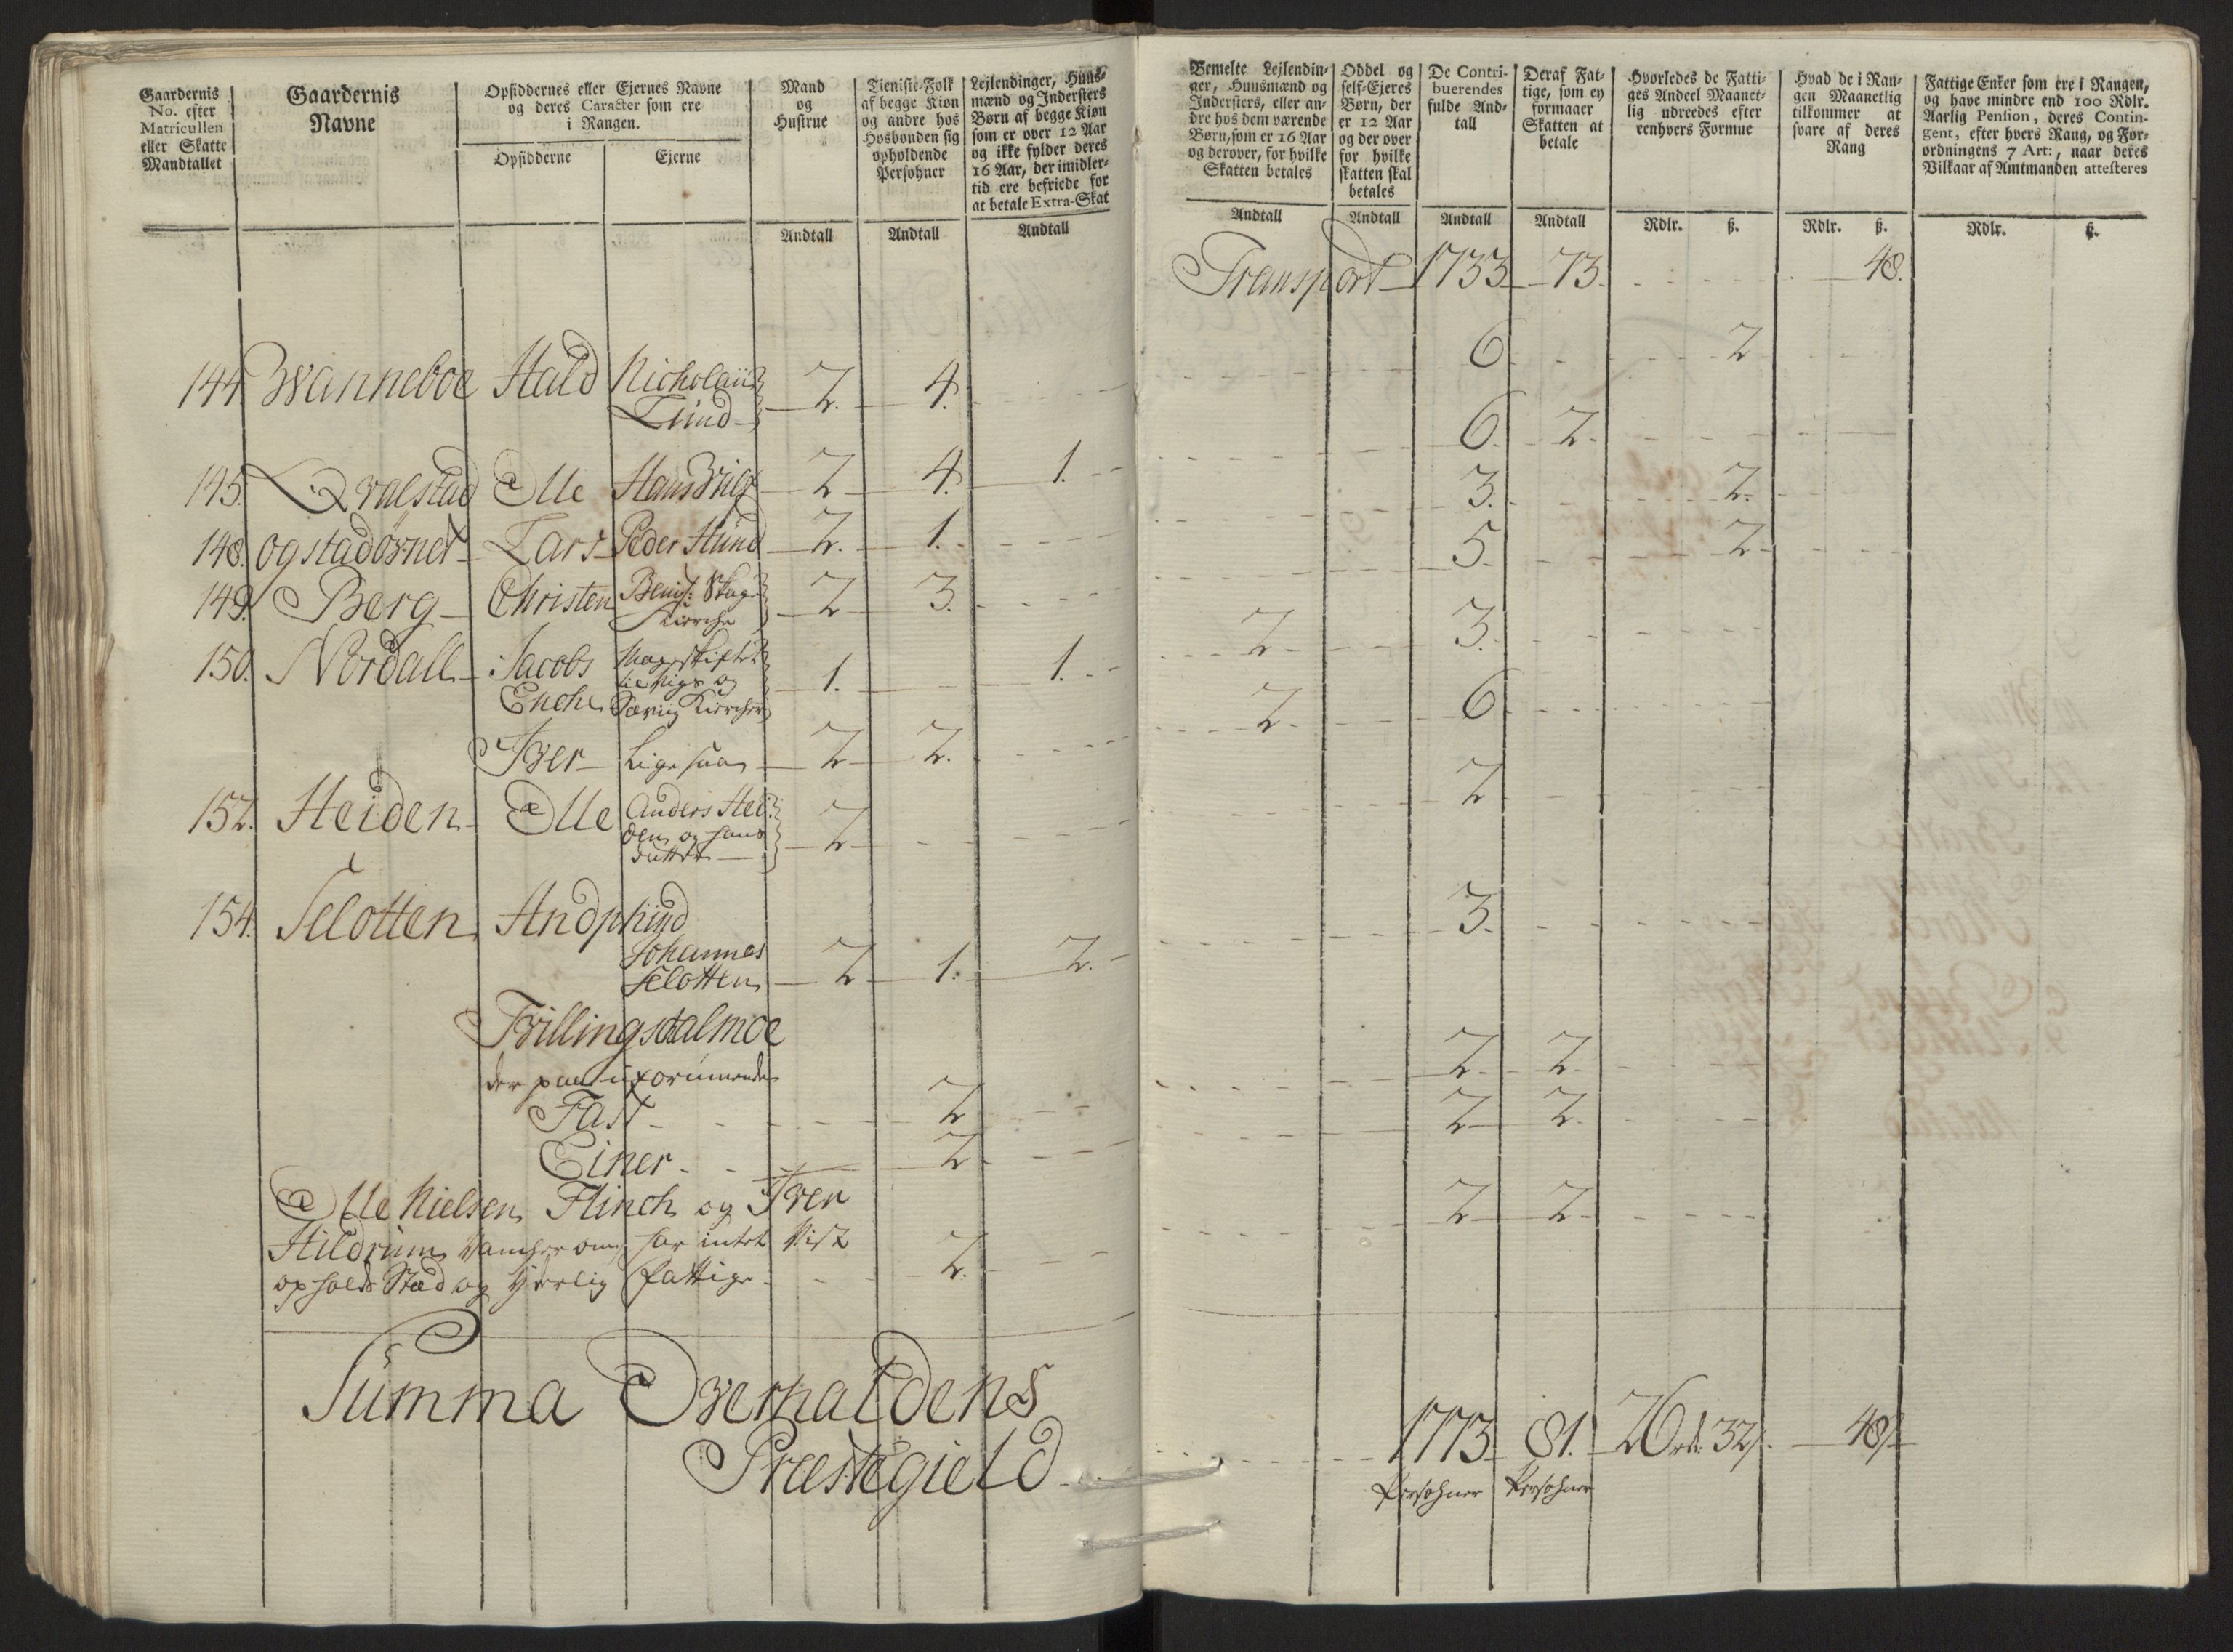 Gaardernis
No. efter
Matricullen
eller Skatte
Mandtallet
Gaardernis
Navne
Opsiddernes eller Ejernes Navne
og deres Caracter som ere
i Rangen.
Opsidderne
Ejerne
Mand
og
Hustrue
Andtall
Tieniste-Folk
af begge Kiøn
og andre hos
Hosbonden sig
opholdende
Persohner
Andtall
Lejlendinger, Huus-
mænd og Indersters
Børn af begge Kiøn
som er over 12 Aar
og ikke fylder deres
16 Aar, der imidler-
tid ere befriede for
at betale Extra-Skat
Andtall
144. Hald Nicholaii 2. 4.
Lund
145. Qvalstad Olle Hans 2 4. 1.
148. Lars Peder Hund 2. 1.
149. Berg Christen 2 3.
Kierche
150. Nordall Jacobs 1. 1.
Enche og Kiercher
Iver Lige saa 2 2.
152. Heiden Olle Anders Hei
den og hans 2
154. Selotten Andphind
Johannes
Selotten 2 1. 2.
Tvillingstalmoe
Fast 2
Einer 2
Olle Nielsen Flinch og Iver
Hildrum har intet vist
opholds Stæd og fattige 2.
Summa Overhaldens
Præstegield
Bemelte Lejlendin-
ger, Huusmænd og
Indersters, eller an-
dre hos dem værende
Børn, som er 16 Aar
og derover, for hvilke
Skatten betales
Andtall
Oddel og
self-Ejeres
Børn, der
er 12 Aar
og der over
for hvilke
skatten skal
betales
Andtall
De Contri-
buerendes
fulde And-
tall
Andtall
Deraf Fat-
tige, som ey
formaaer
Skatten at
betale
Andtall
Hvorledes de Fatti-
ges Andeel Maanet-
lig udreedes efter
eenhvers Formue
Rdlr. ß.
Hvad de i Ran-
gen Maanetlig
tilkommer at
svare af deres
Rang
Rdlr. ß.
Fattige Enker som ere i Rangen,
og have mindre end 100 Rdlr.
Aarlig Pention, deres Contin-
gent, efter hvers Rang, og For-
ordningens 7 Art:, naar deres
Vilkaar af Amtmanden attesteres
Rdlr. ß.
Transport 1733 73. 48.
6. 2
6. 2.
3. 2.
5. 2
2. 3.
2. 6.
2
3.
2 2
2 2.
2 2.
1773 81. 26 rd: 32 ß. 48 ß
Persohner Persohner